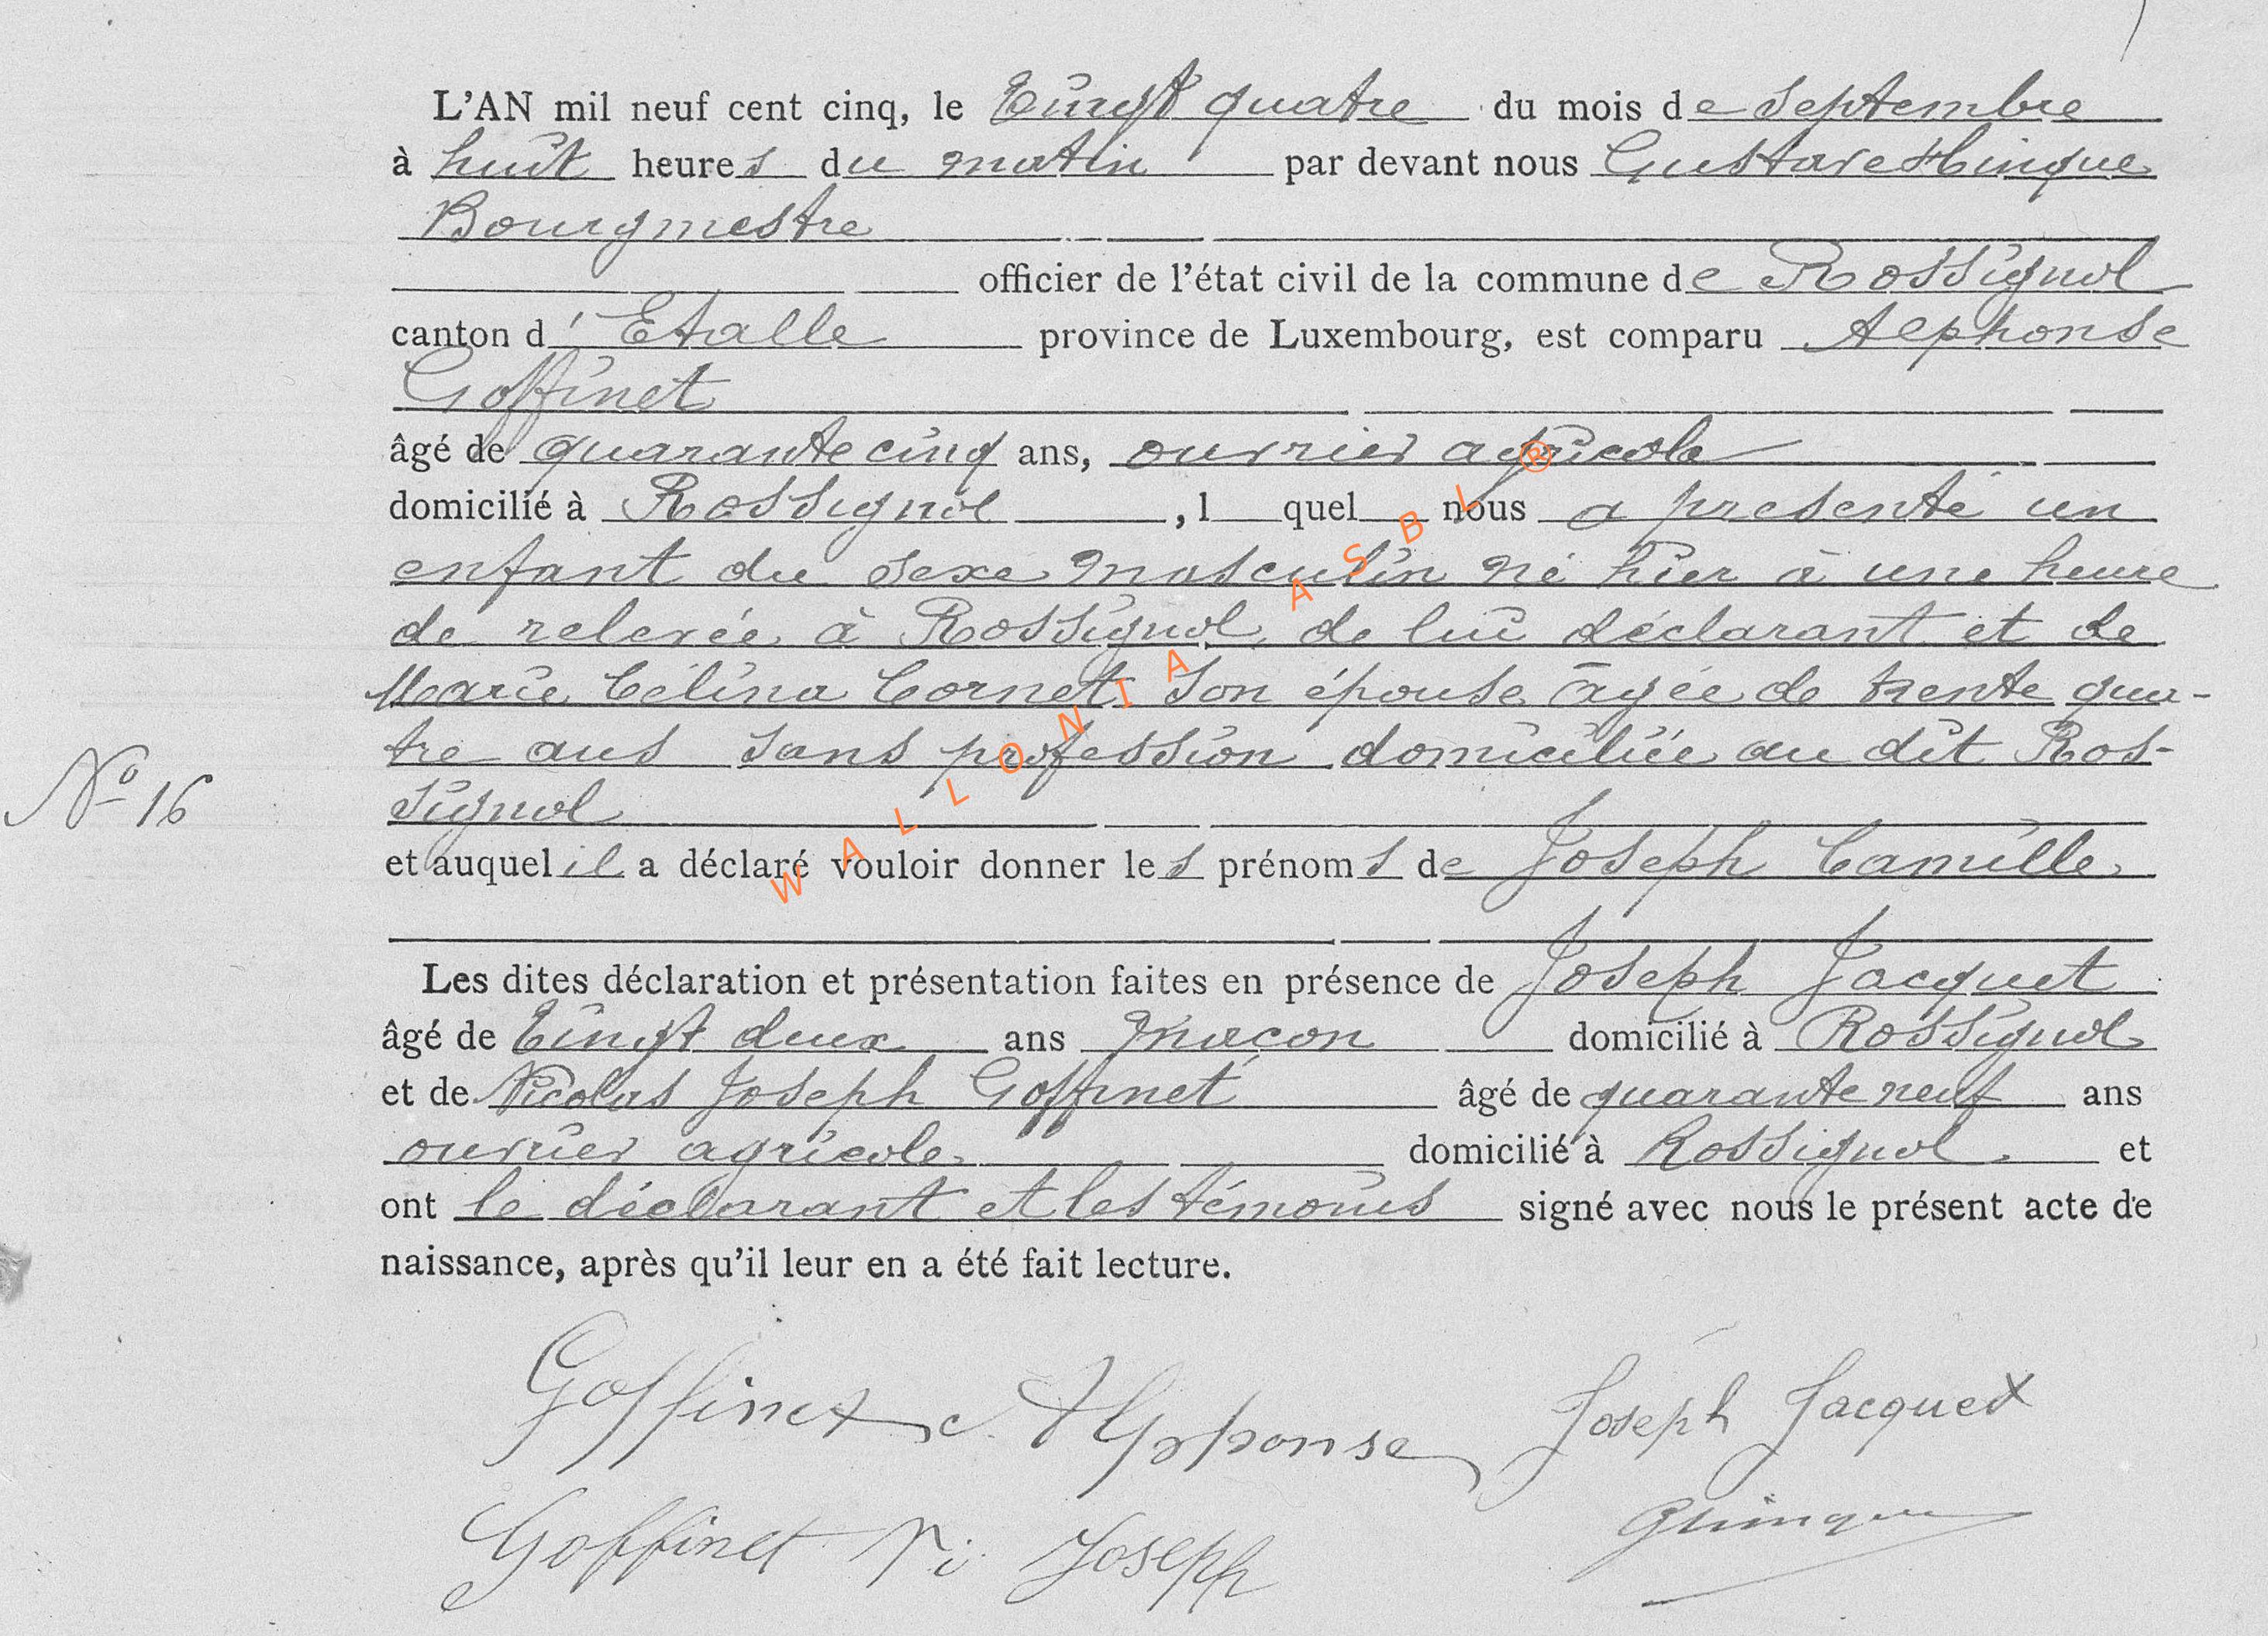 L'AN mil neuf cent cinq, le Vingt quatre du mois de Septembre
à huit heures du matin par devant nous Gustave Hinque
Bourgmestre
officier de l'état civil de la commune de Rossignol
canton d'Etalle province de Luxembourg, est comparu Alphonse
Goffinet
âgé de quarante cinq ans, ouvrier agricole
domicilié à Rossignol, l quel nous a presenté un
enfant du sexe masculin né hier à une heure
de relevée à Rossignol, de lui déclarant et de
Marie Célina Cornet, son épouse âgée de trente qua-
tre ans sans profession domiciliée au dit Ros-
signol
N° 16
et auquel il a déclaré vouloir donner les prénoms de Joseph Camille
Les dites déclaration et présentation faites en présence de Joseph Jacquet
âgé de Vingt deux ans maçon domicilié à Rossignol
et de Nicolas Joseph Goffinet âgé de quarante neuf ans
ouvrier agricole domicilié à Rossignol et
ont le déclarant et les témoins signé avec nous le présent acte de
naissance, après qu'il leur en a été fait lecture.
Goffinet Alphonse Joseph Jacquet
Goffinet Ni Joseph GHinque
WALLONIA ASBL ®